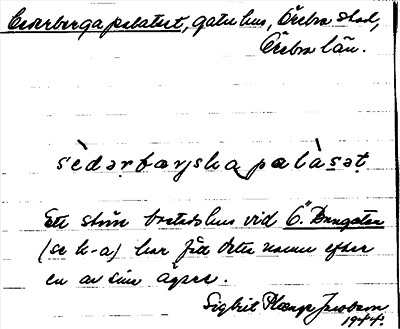 Cederberga palatset, gatuhus, Örebro stad,
Örebro län.
sèdərbærjska palàsət
Ett större bostadshus vid Ö. Drngatan
(se k-a) har fått detta namn efter
en av sina ägare.
Sigbrit Plænge Jacobson
1944.